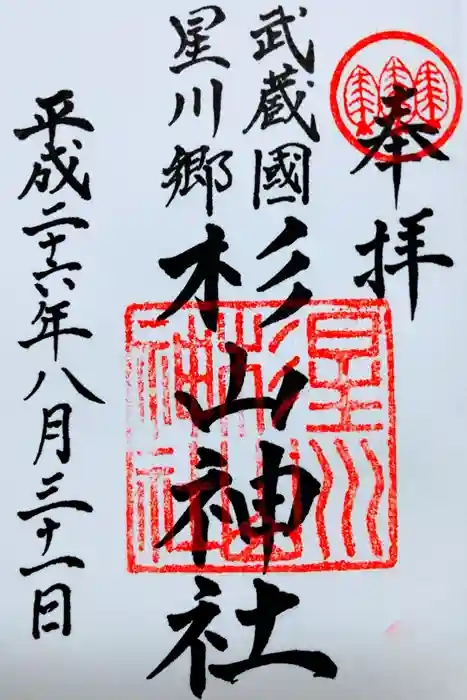 奉拝
武蔵國
星川郷
杉山神社
平成二十六年八月三十一日
星川
杉山
神社